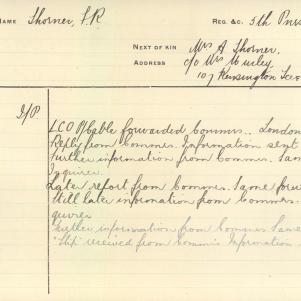 NAME Thorner, F.R. REG. &C. 5th Pnrs
NEXT OF KIN Mrs A Thorner,
ADDRESS c/o Mrs Hurley
107 Kensington
I/P
LCO P/Cable forwarded Commrs.. London
Reply from Commrs. Information sent
further information from Commrs. Same
Inquirer.
Later report from Commrs. Same forw
Still later information from Commrs.
quirer
Further information from Commrs same
"Slip" received from Commrs Information